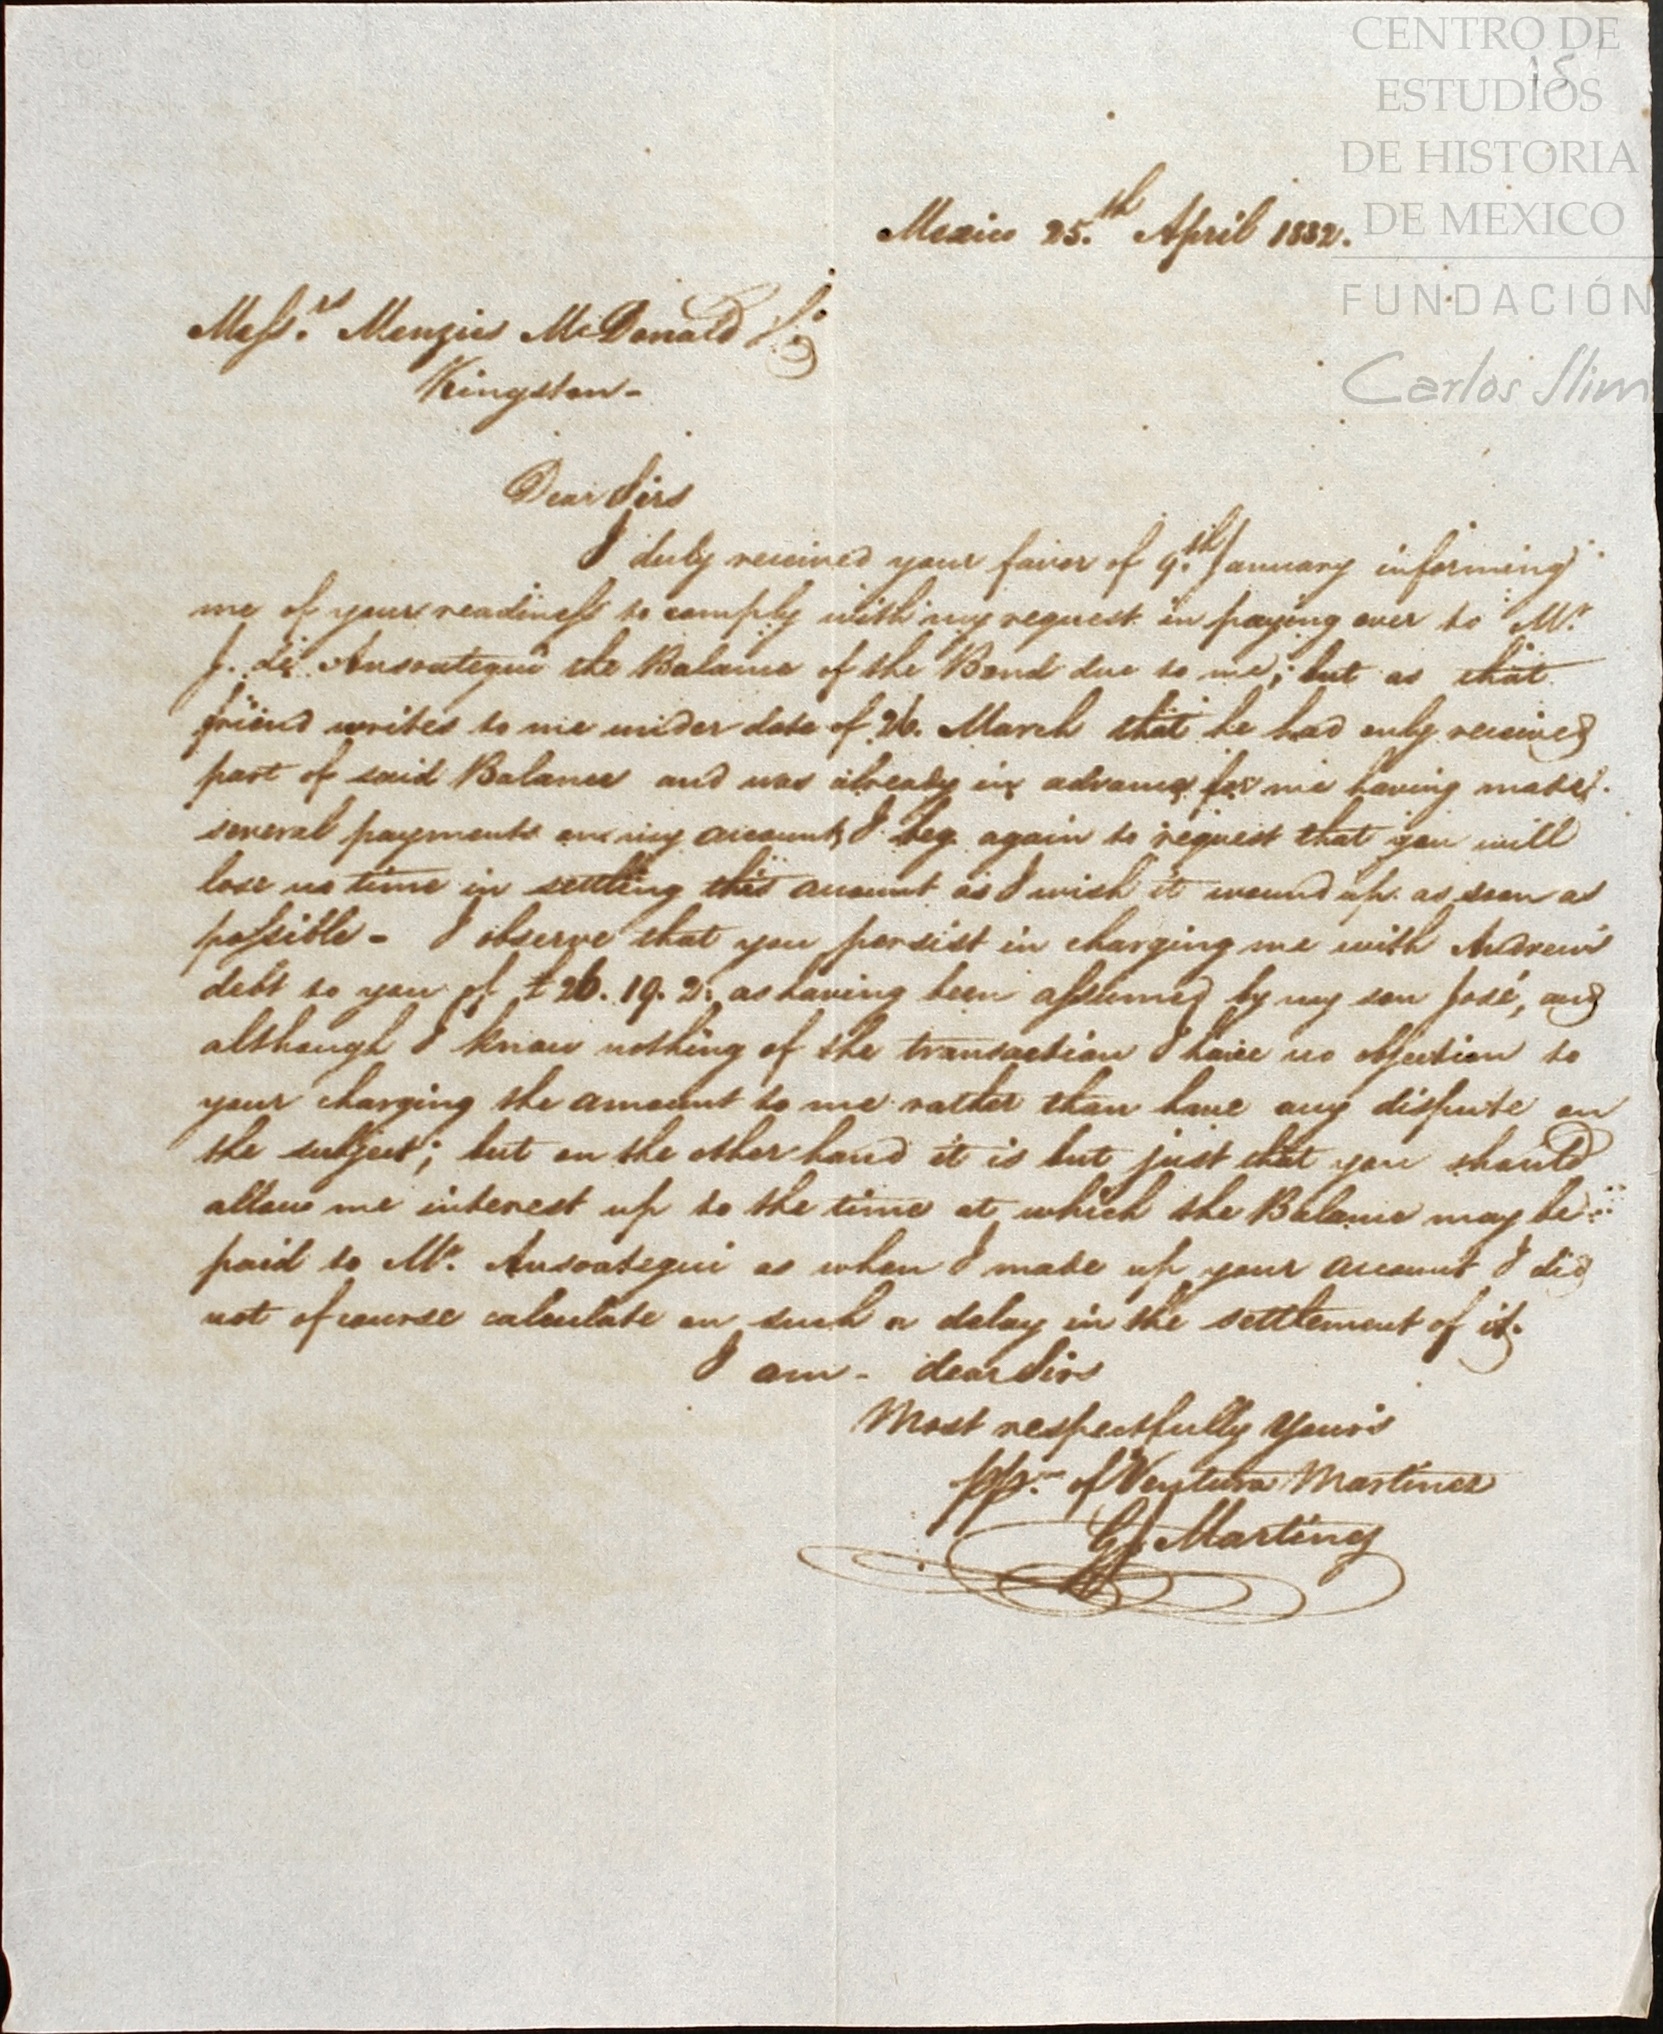 CENTRO DE
ESTUDIOS
DE HISTORIA
DE MEXICO
FUNDACIÓN
Carlos Slim
15
Mexico 25.th April 1832.
Mess.rs Menzies McDonald
Kingston -
Dear Sirs
I duly received your favor of 9.th January informing
me of your readiness to comply with my request in paying over to Mr.
J. de Ansoategui the Balance of the Bond due to me; but as that
friend writes to me under date of 26. March that he had only received
part of said Balance and was already in advance for me having made
several payments on my account, I beg again to request that you will
lose no time in settling this account as I wish it wound up as soon as
possible - I observe that you persist in charging me with Andrew's
debt to you of £26.19.2. as having been assumed by my son José, and
although I know nothing of the transaction I have no objection to
your charging the amount to me rather than have any dispute on
the subject; but on the other hand it is but just that you should
allow me interest up to the time at which the Balance may be
paid to Mr. Ansoategui as when I made up your account I did
not of course calculate on such a delay in the settlement of it.
I am - dear Sirs
Most respectfully Yours
pp. of Ventura Martinez
G J Martinez